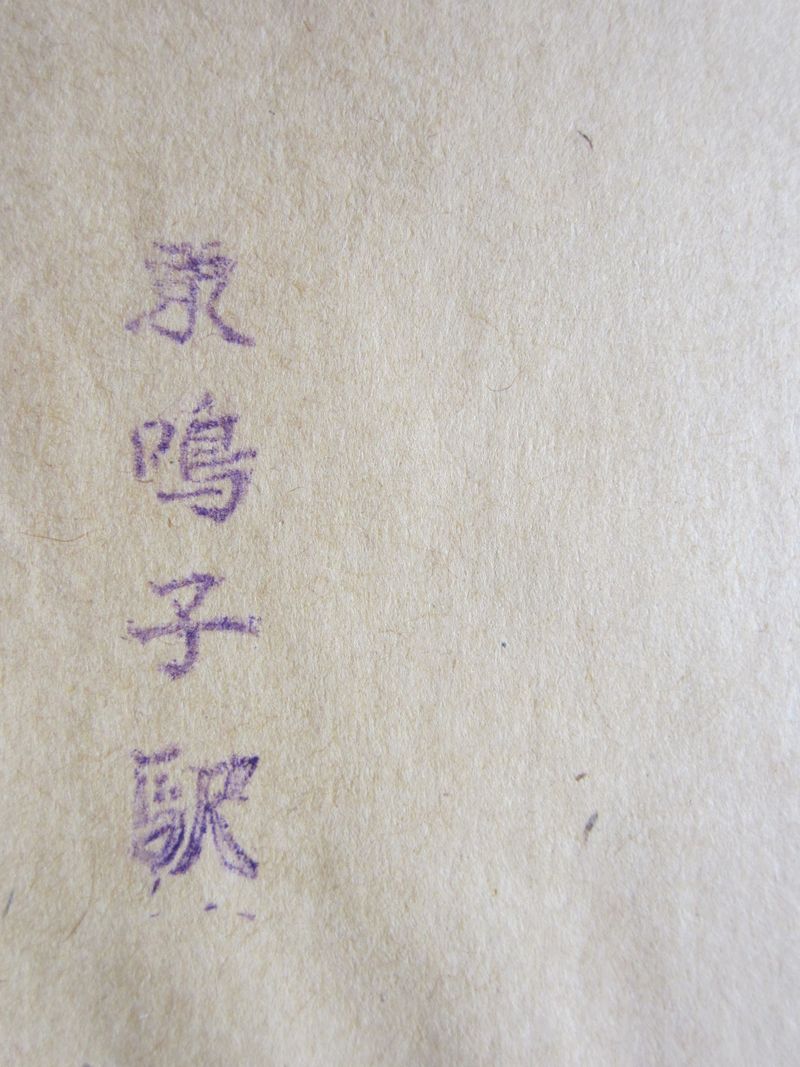 東鳴子駅